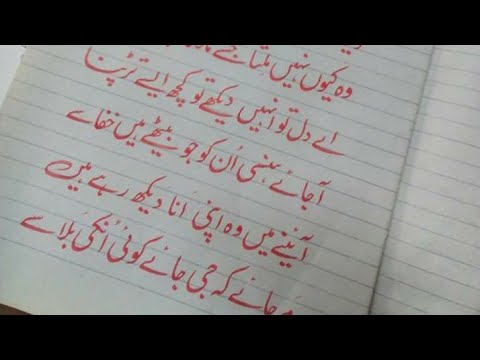 وہ کیوں نہیں ملتا جسے
اے دل تو انہیں دیکھے تو کچھ ایسے تڑپنا
آ جائے ہنسی اُن کو جو بیٹھے ہیں خفا سے
آئینے میں وہ اپنی اَنا دیکھ رہے ہیں
جائے کہ جی جائے کوئی اُنکی بَلا سے